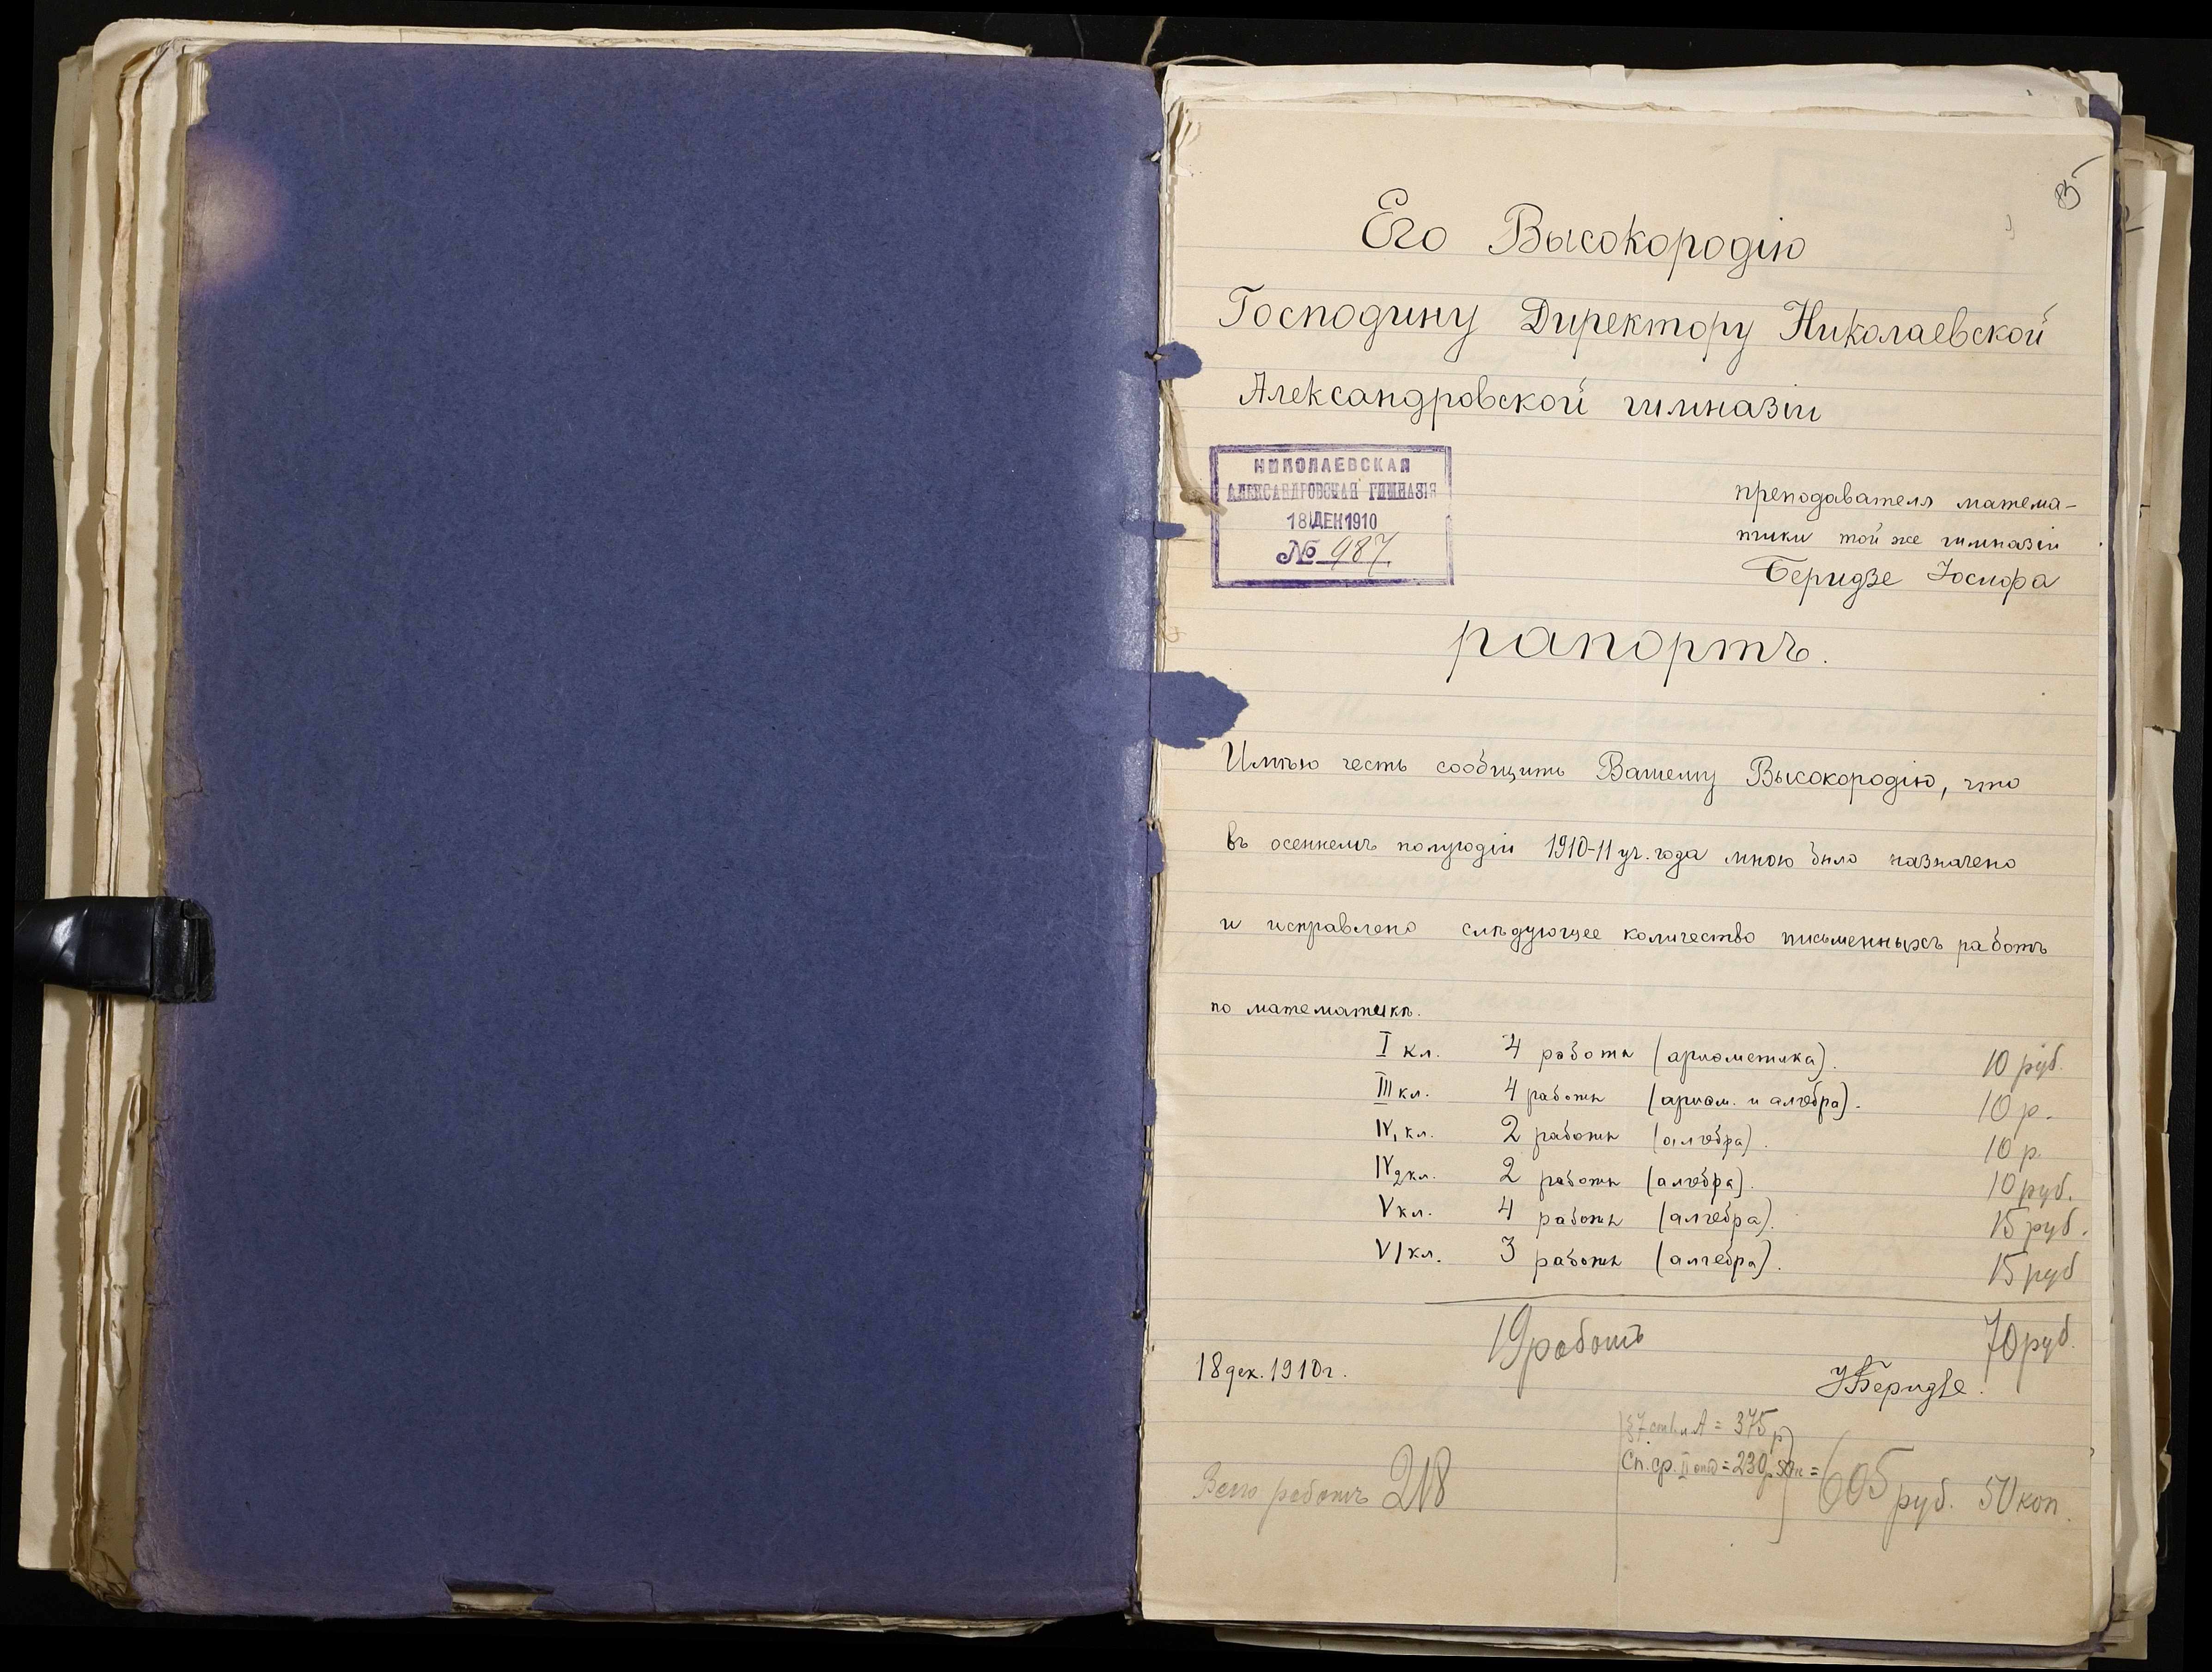 Его Высокородію
Господину Директору Николаевской
Александровской гимназіи
НИКОЛАЕВСКАЯ
АЛЕКСАНДРОВСКАЯ ГИМНАЗІЯ
18 ДЕК 1910
№ 987.
преподавателя матема-
тики той же гимназіи
Беридзе Іосифа
рапортъ.
Имѣю честь сообщить Вашему Высокородію, что
въ осеннемъ полугодіи 1910-11 уч. года мною было назначено
и исправлено слѣдующее количество письменныхъ работъ
по математикѣ.
I кл. 4 работы (ариѳметика). 10 руб.
III кл. 4 работы (ариѳм. и алгебра). 10 р.
IV1 кл. 2 работы (алгебра). 10 р.
IV2 кл. 2 работы (алгебра). 10 руб.
V кл. 4 работы (алгебра). 15 руб.
VI кл. 3 работы (алгебра). 15 руб
19 работъ 70 руб.
18 дек. 1910 г.
І Беридзе.
A = 375 р
Сп. ср. II = 230 р 50 к = 605 руб. 50 коп.
Всего работъ 218